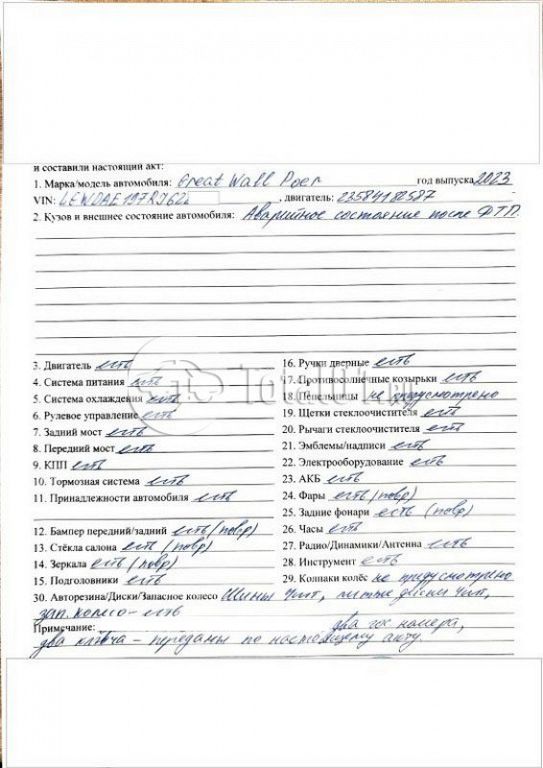 и составили настоящий акт:
1. Марка/модель автомобиля: Great Wall Poer год выпуска 2023
VIN: , двигатель: 23584182587
2. Кузов и внешнее состояние автомобиля: Аварийное состояние после ДТП.
3. Двигатель есть
4. Система питания есть
5. Система охлаждения есть
6. Рулевое управление есть
7. Задний мост есть
8. Передний мост есть
9. КПП есть
10. Тормозная система есть
11. Принадлежности автомобиля есть
12. Бампер передний/задний есть (повр)
13. Стёкла салона есть (повр)
14. Зеркала есть (повр)
15. Подголовники есть
16. Ручки дверные есть
17. Противосолнечные козырьки есть
18. Пепельницы не предусмотрено
19. Щетки стеклоочистителя есть
20. Рычаги стеклоочистителя есть
21. Эмблемы/надписи есть
22. Электрооборудование есть
23. АКБ есть
24. Фары есть (повр)
25. Задние фонари есть (повр)
26. Часы есть
27. Радио/Динамики/Антенна есть
28. Инструмент есть
29. Колпаки колёс не предусмотрено
30. Авторезина/Диски/Запасное колесо Шины 4шт, литые диски 4шт,
зап. колесо - есть
Примечание: два гос номера,
два ключа - переданы по настоящему акту.